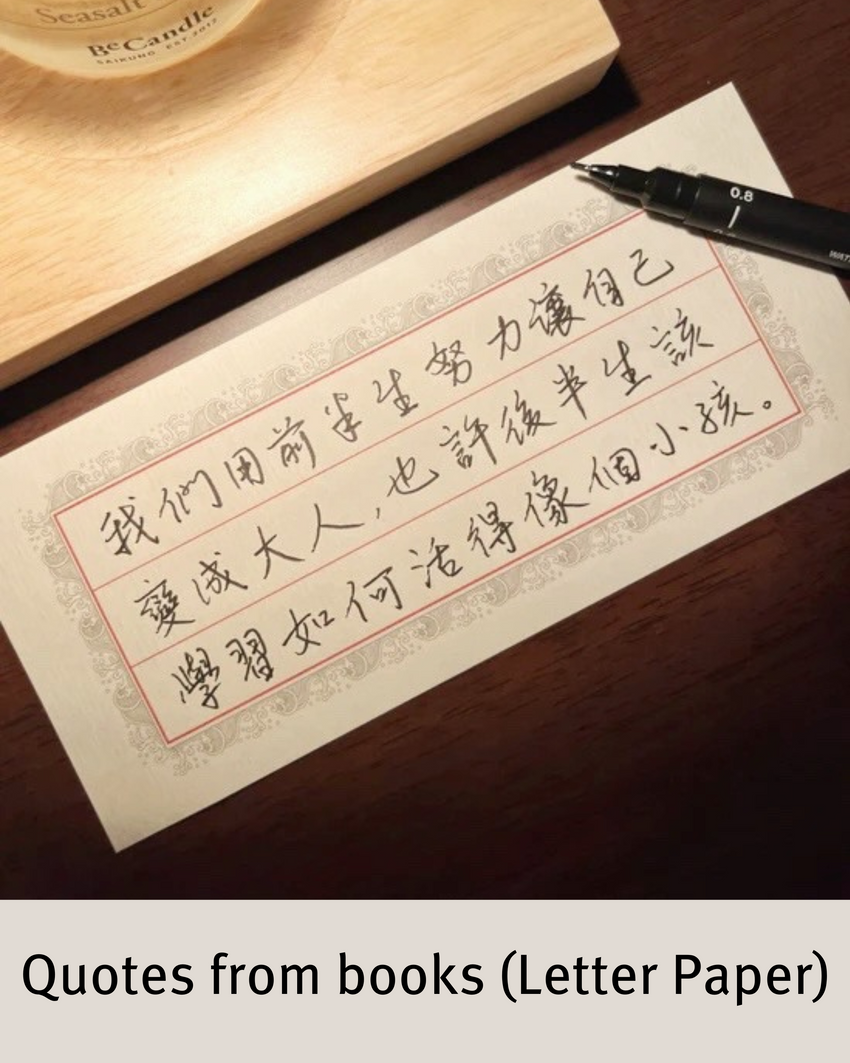 Seasalt
BeCandle
SAIKUNG EST.2017
0.8
我們用前半生努力讓自己
變成大人，也許後半生該
學習如何活得像個小孩。
Quotes from books (Letter Paper)